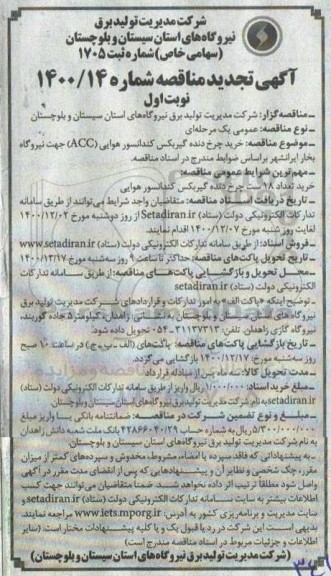 شرکت مدیریت تولید برق
نیروگاه‌های استان سیستان و بلوچستان
(سهامی خاص) شماره ثبت ۱۷۰۵
آگهی تجدید مناقصه شماره ۱۴۰۰/۱۴
نوبت اول
ـ مناقصه‌گزار: شرکت مدیریت تولید برق نیروگاه‌های استان سیستان و بلوچستان
ـ نوع مناقصه: عمومی یک مرحله‌ای
ـ موضوع مناقصه: خرید چرخ دنده گیربکس کندانسور هوایی (ACC) جهت نیروگاه
بخار ایرانشهر براساس ضوابط مندرج در اسناد مناقصه.
ـ مهم‌ترین شرایط عمومی مناقصه:
خرید تعداد ۱۸ ست چرخ دنده گیربکس کندانسور هوایی
ـ تاریخ دریافت اسناد مناقصه: متقاضیان واجد شرایط می‌توانند از طریق سامانه
تدارکات الکترونیکی دولت (ستاد) Setadiran.ir از روز دوشنبه مورخ ۱۴۰۰/۱۲/۰۲
لغایت روز شنبه مورخ ۱۴۰۰/۱۲/۰۷ اقدام نمایند.
ـ فروش اسناد: از طریق سامانه تدارکات الکترونیکی دولت (ستاد) www.setadiran.ir
ـ تاریخ تحویل پاکت‌های مناقصه: حداکثر تا ساعت ۹ روز سه‌شنبه مورخ ۱۴۰۰/۱۲/۱۷
ـ محل تحویل و بازگشایی پاکت‌های مناقصه: از طریق سامانه تدارکات
الکترونیکی دولت (ستاد) setadiran.ir
ـ توضیح اینکه «پاکت الف» به امور تدارکات و قراردادهای شرکت مدیریت تولید برق
نیروگاه‌های استان سیستان و بلوچستان به نشانی: زاهدان، کیلومتر ۵ جاده گوربند،
نیروگاه گازی زاهدان. تلفن: ۳۱۱۳۷۳۱۳-۰۵۴ تحویل داده شود.
ـ تاریخ بازگشایی پاکت‌های مناقصه: پاکت‌های (الف ـ ب ـ ج) در ساعت ۱۰ صبح
روز سه‌شنبه مورخ: ۱۴۰۰/۱۲/۱۷ بازگشایی می‌گردد.
ـ مدت تحویل کالا: ماه پس از مبادله قرارداد
ـ مبلغ خرید اسناد: ۱/۰۰۰/۰۰۰ ریال واریز از طریق سامانه تدارکات الکترونیکی دولت (ستاد)
setadiran.ir به نام شرکت مدیریت تولید برق نیروگاه‌های استان سیستان و بلوچستان
ـ مبلغ و نوع تضمین شرکت در مناقصه: ضمانتنامه بانکی یا واریز مبلغ
۵/۳۰۰/۰۰۰/۰۰۰ ریال به شماره حساب ۴۲۸۶۶۰۴۰/۲۹ بانک ملت شعبه دانش زاهدان
به نام شرکت مدیریت تولید برق نیروگاه‌های استان سیستان و بلوچستان
ـ به پیشنهاداتی که فاقد سپرده یا امضاء، مشروط، مخدوش و سپرده‌های کمتر از میزان
مقرر، چک شخصی و نظایر آن و پیشنهادهایی که پس از انقضای مدت مقرر در آگهی
واصل شود مطلقا ترتیب اثر داده نخواهد شد. ضمنا متقاضیان می‌توانند جهت کسب
اطلاعات بیشتر به سایت سامانه تدارکات الکترونیکی دولت (ستاد) setadiran.ir و
سایت مدیریت و برنامه‌ریزی کشور به آدرس: www.iets.mporg.ir مراجعه نمایند.
بدیهی است این شرکت در رد یا قبول یک و یا کلیه پیشنهادات مختار است. (سایر
اطلاعات و جزئیات مربوط در اسناد مناقصه مندرج است)
(شرکت مدیریت تولید برق نیروگاه‌های استان سیستان و بلوچستان)